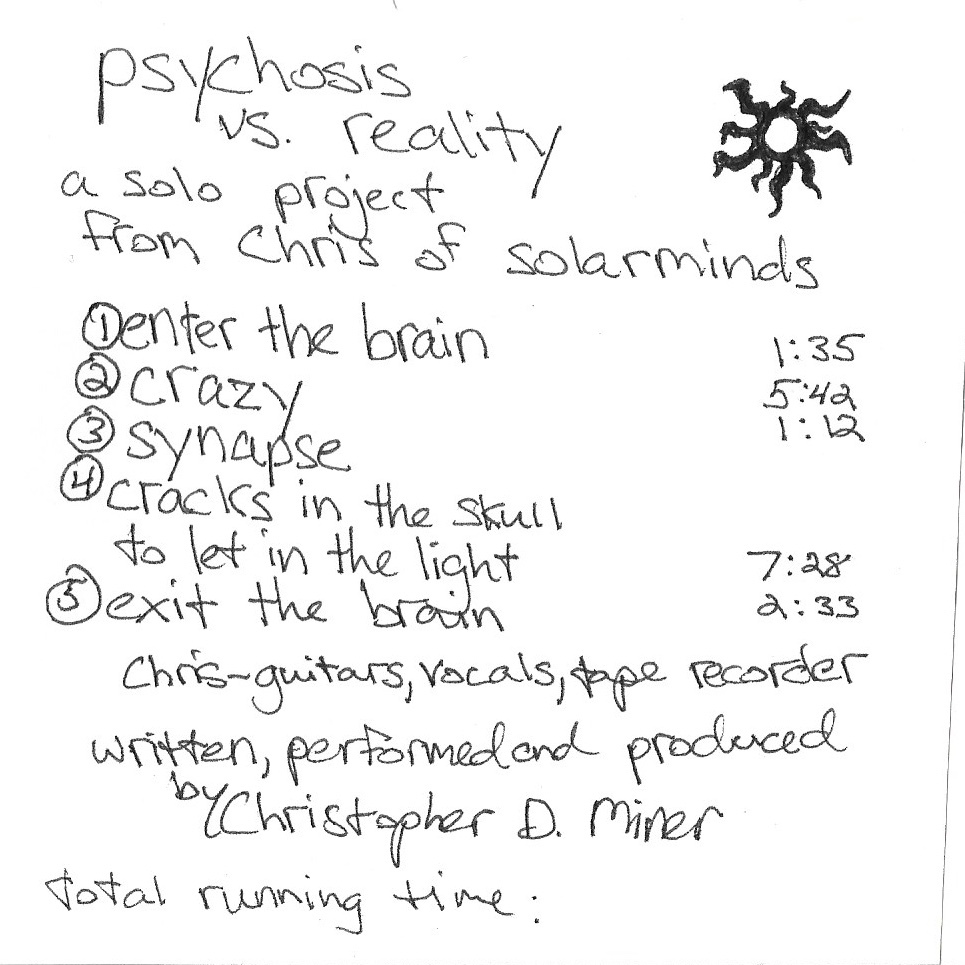 psychosis
vs. reality
a solo project
from Chris of solarminds
① enter the brain 1:35
② crazy 5:42
③ synapse 1:12
④ cracks in the skull
to let in the light 7:28
⑤ exit the brain 2:33
Chris-guitars, vocals, tape recorder
written, performed and produced
by Christopher D. Miner
total running time: